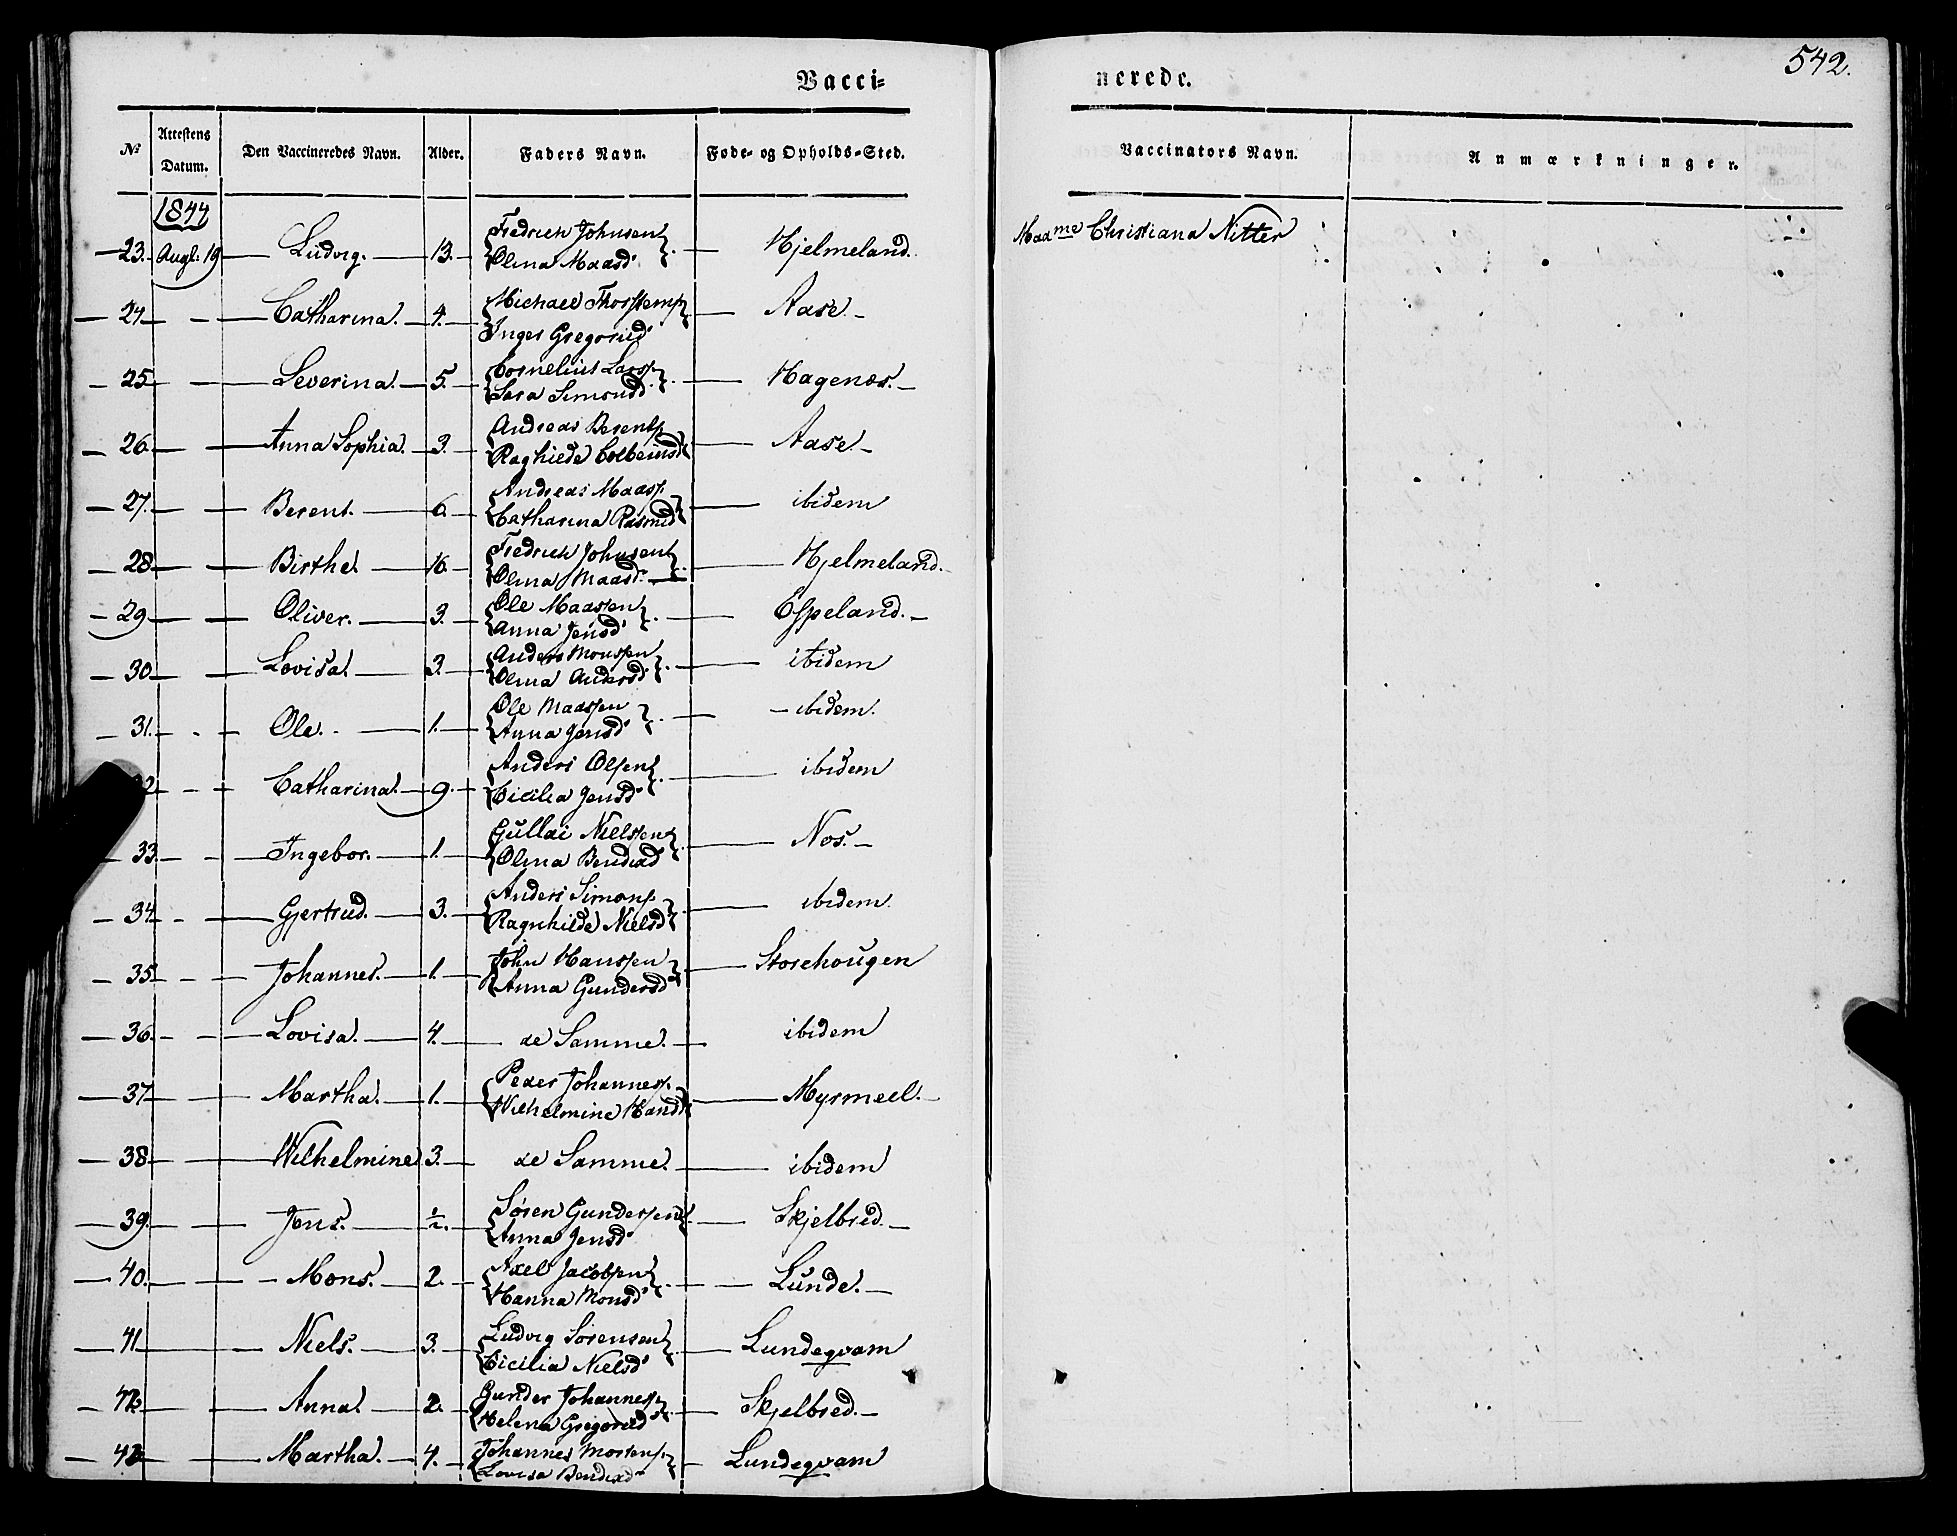 Vacci=
nerede.
542.
№ Attestens Datum. Den Vaccineredes Navn. Alder. Faders Navn. Føde- og Opholds-Sted. Vaccinators Navn. Anmærkninger.
1844
23. Augt. 19 Ludvig. 13. Fredrich Johnsen Hjelmeland. Madme Christiana Nitter
Olina Maasd
24 Catharina. 4. Michael Thorstens Aase
Inger Gregorid
25 Severina. 5. Cornelius Lars Hagenæs.
Sara Simonsd
26 Anna Sophia. 3. Andreas Berents Aase
Raghilde Colbeinsd
27. Berent. 6. Andreas Maass. ibidem
Catharina Rasmd
28 Birthe. 16. Fredrich Johnsen Hjelmeland.
Olina Maasd.
29 Oliver. 3. Ole Maassen Espeland.
Anna Jensd
30 Lovisa. 3. Anders Monssen ibidem
Olina Andersd
31. Ole. 1. Ole Maassen ibidem.
Anna Jensd
2 Catharina. 9. Anders Olsen ibidem
Cicilia Jensd
33 Ingebor. 1. Gullai Nielssen Nos.
Olina Bendixd
34 Gjertrud. 3. Anders Simons. ibidem.
Ragnhilde Nielsd
35 Johannes. 1. John Hanssen Storehougen
Anna Gundersd
36. Lovisa. 4. de Samme. ibidem
37 Martha. 1. Peder Johanness. Myrmeel.
Wilhelmine Hansd
38 Wilhelmine 3. de Samme. ibidem
39. Jens. ½. Søren Gunderssen Skjelbred.
Anna Jensd
40. Mons. 2. Axel Jacobsen Lunde.
Hanna Monsd
41 Niels. 3. Ludvig Sørensen Lundeqvam
Cicilia Nielsd
42 Anna. 2. Gunder Johanness. Skjelbred.
Helena Gregorid
43 Martha. 4. Johannes Mortens. Lundeqvam
Lovisa Bendixd